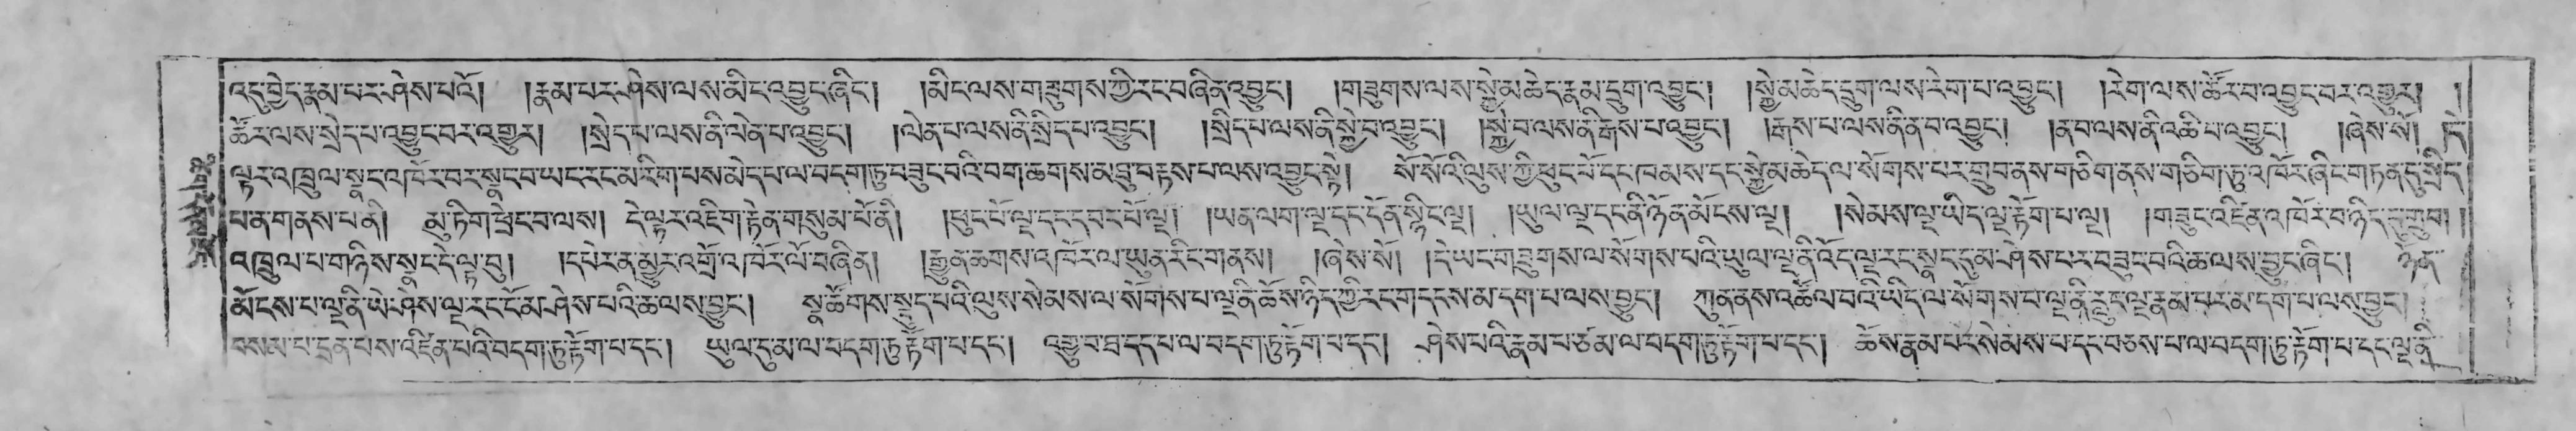 འདུ་བྱེད་རྣམ་པར་ཤེས་པའོ། །རྣམ་པར་ཤེས་ལས་མིང་འབྱུང་ཞིང་། །མིང་ལས་གཟུགས་ཀྱིརང་བཞིན་འབྱུང་། །གཟུགས་ལས་སྐྱེ་མཆེད་རྣམ་དྲུག་འབྱུང་། །སྐྱེ་མཆེད་དྲུག་ལས་རེག་པ་འབྱུང་། །རེག་ལས་ཚོར་བ་འབྱུང་བར་འགྱུར། །
ཚོར་ལས་སྲེད་པ་འབྱུང་བར་འགྱུར། །སྲེད་པ་ལས་ནི་ལེན་པ་འབྱུང་། །ལེན་པ་ལས་ནི་སྲིད་པ་འབྱུང་། །སྲིད་པ་ལས་ནི་སྐྱེ་བ་འབྱུང་། །སྐྱེ་བ་ལས་ནི་རྒས་པ་འབྱུང་། །རྒས་པ་ལས་ནི་ན་བ་འབྱུང་། །ན་བ་ལས་ནི་འཆི་བ་འབྱུང་། །ཞེས་སོ། །དེ་
ལྟར་འཁྲུལ་སྣང་འཁོར་བར་སྣང་བ་ཡང་རང་མ་རིག་པས་མེད་པ་ལ་བདག་ཏུ་བཟུང་བའི་བག་ཆགས་མཐུ་བརྟས་པ་ལས་འབྱུང་སྟེ། སོ་སོའི་ལུས་ཀྱི་ཕུང་པོ་དང་ཁམས་དང་སྐྱེ་མཆེད་ལ་སོགས་པར་གྲུབ་ནས་གཅིག་ནས་གཅིག་ཏུ་འཁོར་ཞིང་གཏན་དུ་སྲིད་
པན་གནས་པ་ནི། མུ་ཏིག་ཕྲེང་བ་ལས། དེ་ལྟར་འཇིག་རྟེན་གསུམ་པོ་ནི། །ཕུང་པོ་ལྔ་དང་དབང་པོ་ལྔ། །ཡན་ལག་ལྔ་དང་དོན་སྙིང་ལྔ། །ཡུལ་ལྔ་དང་ནི་ཉོན་མོངས་ལྔ། །སེམས་ལྔ་ཡིད་ལྔ་རྟོག་པ་ལྔ། །གཟུང་འཛིན་འཁོར་བ་ཉིད་དུ་གྲུབ། །
འཁྲུལ་པ་གཉིས་སྣང་དེ་ལྟ་བུ། །དཔེར་ན་མྱུར་འགྲོ་འཁོར་ལོ་བཞིན། །རྒྱུན་ཆགས་འཁོར་ལ་ཡུན་རིང་གནས། །ཞེས་སོ། །དེ་ཡང་གཟུགས་ལ་སོགས་པའི་ཡུལ་ལྔ་ནི་འོད་ལྔ་རང་སྣང་དུ་མ་ཤེས་པར་བཟུང་བའི་ཆ་ལས་བྱུང་ཞིང་། ཉོན་
མོངས་པ་ལྔ་ནི་ཡེ་ཤེས་ལྔ་རང་ངོ་མ་ཤེས་པའི་ཆ་ལས་བྱུང་། སྣ་ཚོགས་སྡུད་པའི་ལུས་སེམས་ལ་སོགས་པ་ལྔ་ནི་ཆོས་ཉིད་ཀྱི་རང་གདངས་མ་དག་པ་ལས་བྱུང་། ཀུན་ནས་འཚོལ་བའི་ཡིད་ལ་སོགས་པ་ལྔ་ནི་རླུང་ལྔ་རྣམ་པར་མ་དག་པ་ལས་བྱུང་།
བསམ་པ་དྲན་པས་འཛིན་པའི་བདག་ཏུ་རྟོག་པ་དང་། ཡུལ་དུ་མ་ལ་བདག་ཏུ་རྟོག་པ་དང་། འགྱུ་བ་ཐ་དད་པ་ལ་བདག་ཏུ་རྟོག་པ་དང་། ཤེས་པའི་རྣམ་པ་ཙམ་ལ་བདག་ཏུ་རྟོག་པ་དང་། ཆོས་རྣམ་པར་སེམས་པ་དང་བཅས་པ་ལ་བདག་ཏུ་རྟོག་པ་དང་ལྔ་ནི་